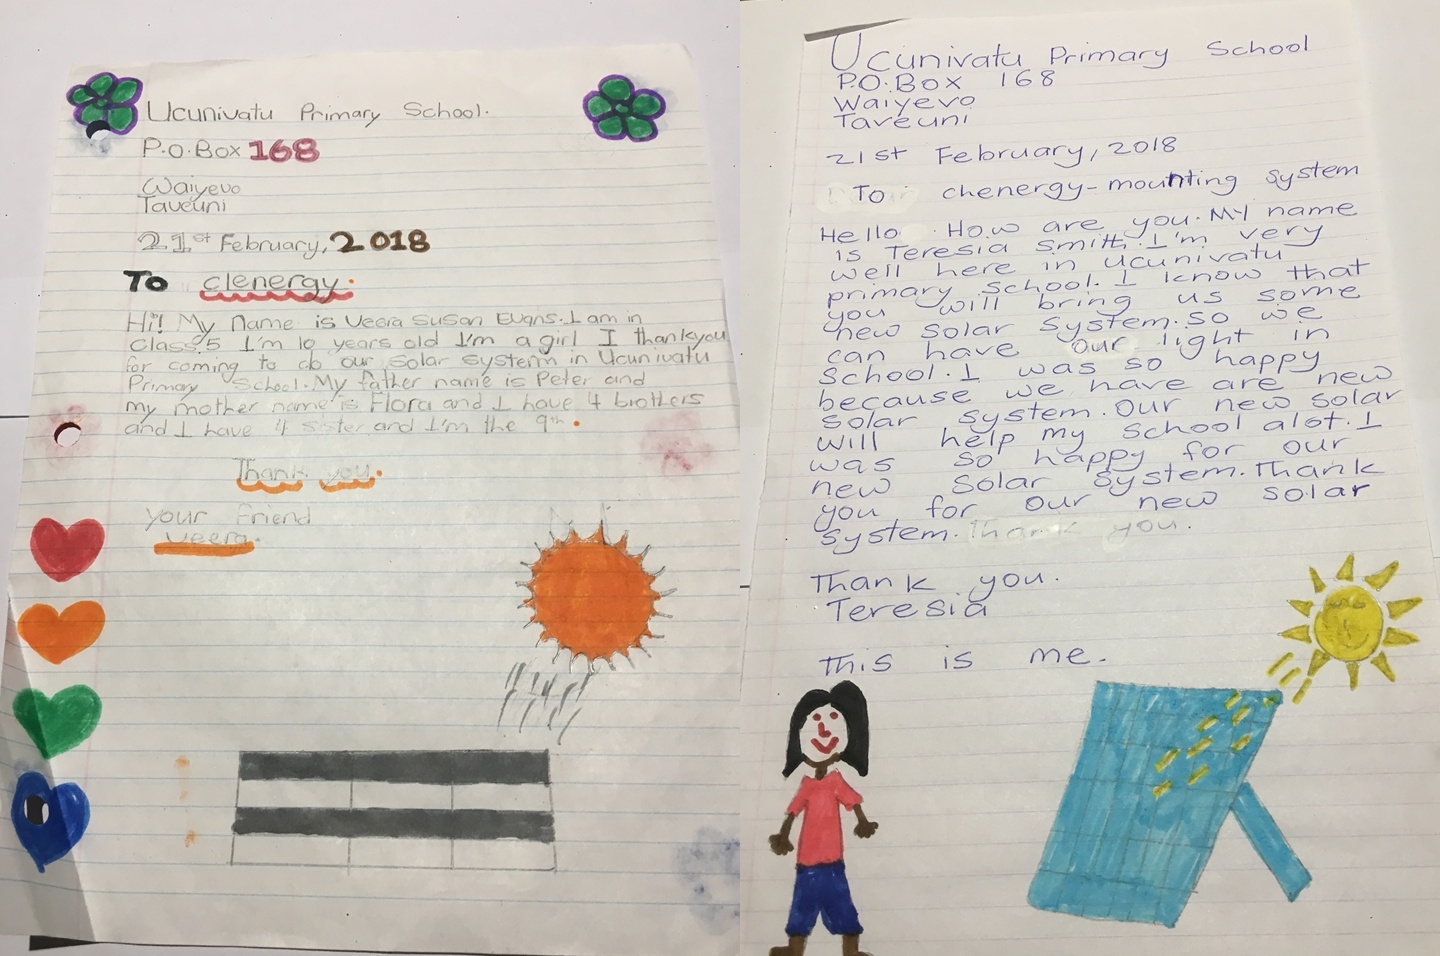 Ucunivatu Primary School.
P.O.Box 168
Waiyevo
Taveuni
21st February, 2018
To clenergy.
Hi! My name is Veera Susan Evans. I am in
Class 5 I'm 10 years old I'm a girl I thankyou
for coming to do our solar system in Ucunivatu
Primary School. My father name is Peter and
my mother name is Flora and I have 4 brothers
and I have 4 sister and I'm the 9th.
Thank you.
your friend
Veera.
Ucunivatu Primary School
P.O.Box 168
Waiyevo
Taveuni
21st February, 2018
To chenergy-mounting system
Hello. How are you. My name
is Teresia Smith. I'm very
well here in Ucunivatu
primary School. I know that
you will bring us some
new solar system. so we
can have our light in
School. I was so happy
because we have are new
solar system. Our new solar
will help my school alot. I
was so happy for our
new solar system. Thank
you for our new solar
system. Thank you.
Thank you.
Teresia
This is me.